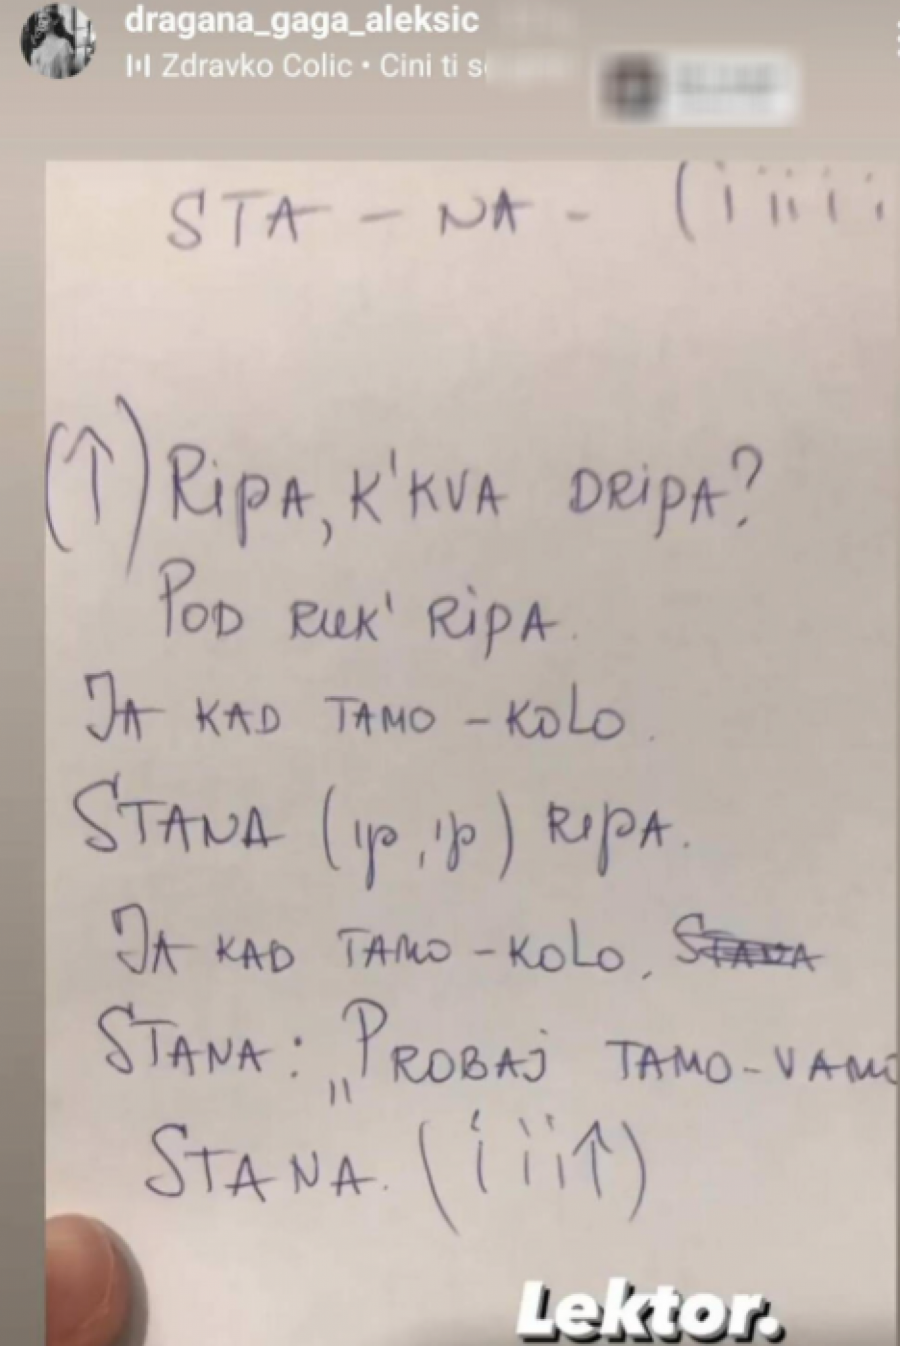 dragana_gaga_aleksic
Zdravko Colic • Cini ti s
STA - NA - (i i i i i
(↑) RiPA, K'KVA DRiPA?
POD RUK' RiPA.
JA KAD TAMO - KOLO.
STANA (ip, ip) RIPA.
JA KAD TAMO - KOLO. STANA
STANA: „PROBAJ TAMO-VAMO
STANA. (i i i ↑)
Lektor.